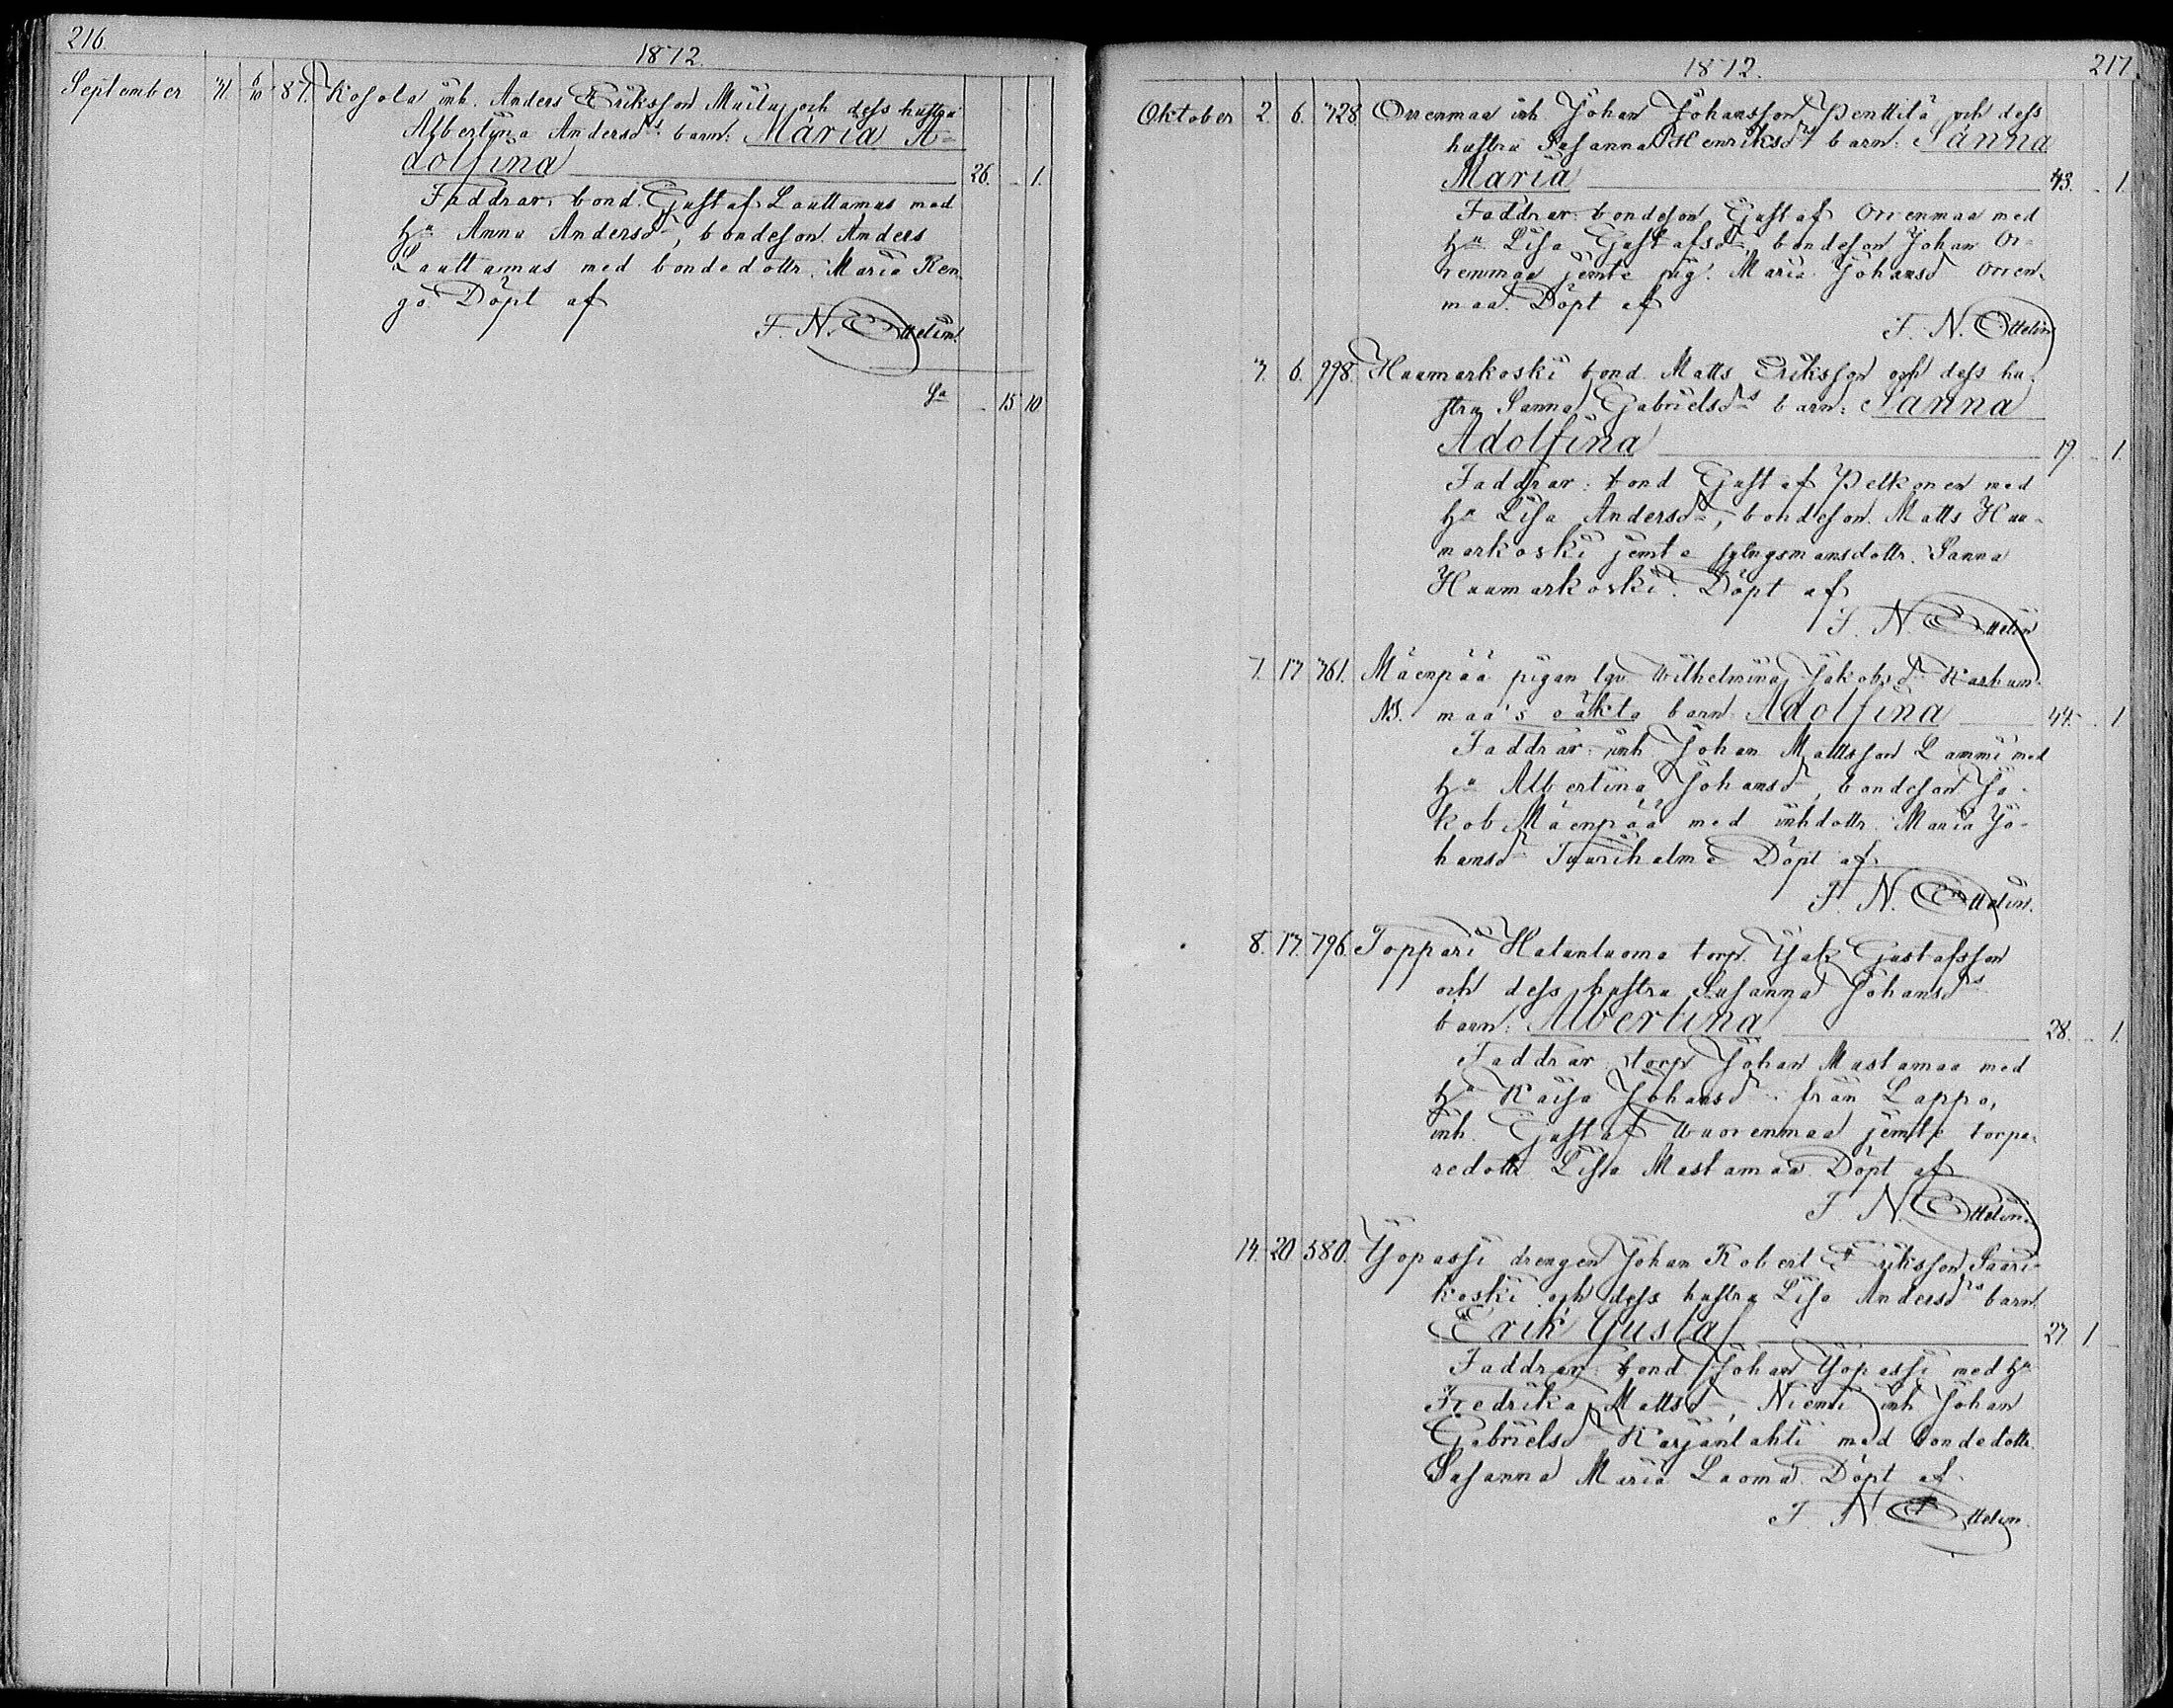 216.
1872.
September 21. 6/10 87. Kosola inh. Anders Eriksson Muilu och dess hustru
Albertina Andersdrs barn: Maria A-
dolfina 26. - 1.
Faddrar: bond. Gustaf Lauttamus med
hu Anna Andersdr, bondeson Anders
Lauttamus med bondedottr. Maria Ren-
go. Döpt af
F. N. Ottelin.
Sa - 15 10
1872.
217.
Oktober 2. 6. 728. Orrenmaa inh. Johan Johansson Penttilä och dess
hustru Susanna Henriksdrs barn: Sanna
Maria 43. - 1.
Faddrar: bondeson Gustaf Orrenmaa med
hu Lisa Gustafsdr, bondeson Johan Or-
renmaa jemte pig. Maria Johansdr Orren-
maa. Döpt af
F. N. Ottelin
3. 6. 998. Haamarkoski bond. Matts Eriksson och dess hu-
stru Sanna Gabrielsdrs barn: Sanna
Adolfina 19. - 1.
Faddrar: bond Gustaf Pelkonen med
hu Lisa Andersdr, bondeson Matts Haa-
markoski jemte sytngsmansdottr. Sanna
Haamarkoski. Döpt af
F. N. Ottelin
7. 13 361. Mäenpää pigan lgv. Wilhelmina Jakobsdr Karhun-
NB. maa's oäkta barn Adolfina 44. - 1
Faddrar: inh. Johan Mattsson Lammi med
hu Albertina Johansdr, bondeson Ja-
kob Mäenpää med inhdottr. Maria Jo-
hansdr Döpt af
F. N. Ottelin.
8. 13. 796. Toppari torp. Jak. Gustafsson
och dess hustru Susanna Johansdrs
barn: Albertina 28. - 1.
Faddrar: torp Johan Mastamaa med
hu Kaisa Johansdr från Lappo,
inh. Gustaf Wuorenmaa jemte torpa-
redottr Lisa Mastamaa. Döpt af
F. N. Ottelin.
14. 20 580. Yöpassi drengen Johan Robert Eriksson Saari-
koski och dess hustru Lisa Andersdrs barn
Erik Gustaf 27. 1. -
Faddrar: bond. Johan Yöpassi med hu
Fredrika Mattsdr, Niemi inh Johan
Gabrielsd Karjanlahti med bondedottr.
Susanna Maria Laoma. Döpt af
F. N. Ottelin.